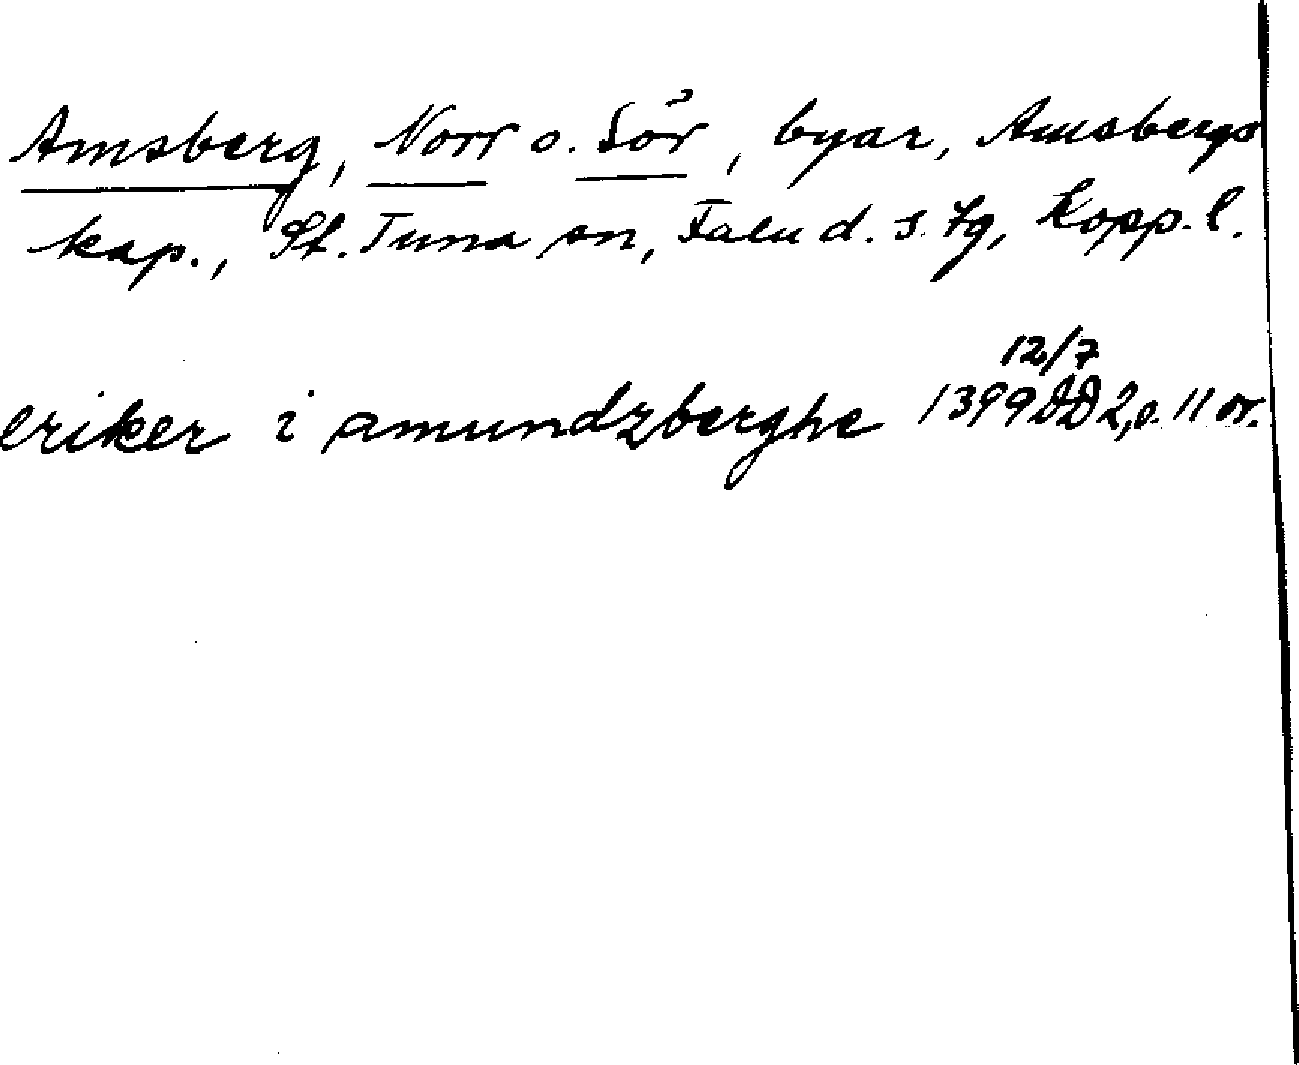 Amsberg, Norr o. Sör, byar, Amsbergs
kap., St. Tuna sn, Falu d. s. tg, Kopp. l.
12/7
eriker i amundzberghe 1399 DD 2, s. 11 or.